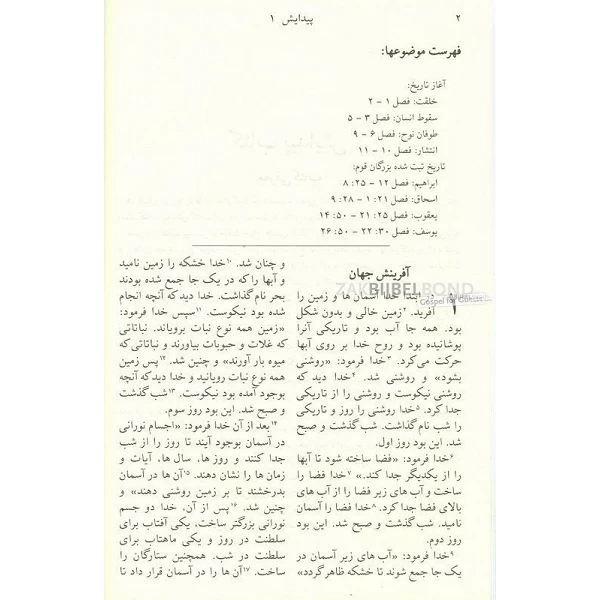 ۲
پیدایش ۱
فهرست موضوعها:
آغاز تاریخ:
خلقت: فصل ۱ - ۲
سقوط انسان: فصل ۳ - ۵
طوفان نوح: فصل ۶ - ۹
انتشار: فصل ۱۰ - ۱۱
تاریخ ثبت شده بزرگان قوم:
ابراهیم: فصل ۱۲ - ۲۵: ۸
اسحاق: فصل ۲۱: ۱ - ۲۸: ۹
یعقوب: فصل ۲۵: ۲۱ - ۵۰: ۱۴
یوسف: فصل ۳۰: ۲۲ - ۵۰: ۲۶
آفرینش جهان
ZAKBIJBELBOND
Gospel for Guests
۱ در ابتدا خدا آسمان ها و زمین را
آفرید. ۲زمین خالی و بدون شکل
بود. همه جا آب بود و تاریکی آنرا
پوشانیده بود و روح خدا بر روی آبها
حرکت می‌کرد. ۳خدا فرمود: «روشنی
بشود» و روشنی شد. ۴خدا دید که
روشنی نیکوست و روشنی را از تاریکی
جدا کرد. ۵خدا روشنی را روز و تاریکی
را شب نام گذاشت. شب گذشت و صبح
شد. این بود روز اول.
۶خدا فرمود: «فضا ساخته شود تا آبها
را از یکدیگر جدا کند.» ۷خدا فضا را
ساخت و آب های زیر فضا را از آب های
بالای فضا جدا کرد. ۸خدا فضا را آسمان
نامید. شب گذشت و صبح شد. این بود
روز دوم.
۹خدا فرمود: «آب های زیر آسمان در
یک جا جمع شوند تا خشکه ظاهر گردد»
و چنان شد. ۱۰خدا خشکه را زمین نامید
و آبها را که در یک جا جمع شده بودند
بحر نام گذاشت. خدا دید که آنچه انجام
شده بود نیکوست. ۱۱سپس خدا فرمود:
«زمین همه نوع نبات برویاند. نباتاتی
که غلات و حبوبات بیاورند و نباتاتی که
میوه بار آورند» و چنین شد. ۱۲پس زمین
همه نوع نبات رویانید و خدا دید که آنچه
بوجود آمده بود نیکوست. ۱۳شب گذشت
و صبح شد. این بود روز سوم.
۱۴بعد از آن خدا فرمود: «اجسام نورانی
در آسمان بوجود آیند تا روز را از شب
جدا کنند و روز ها، سال ها، آیات و
زمان ها را نشان دهند. ۱۵آن ها در آسمان
بدرخشند تا بر زمین روشنی دهند» و
چنین شد. ۱۶پس از آن، خدا دو جسم
نورانی بزرگتر ساخت، یکی آفتاب برای
سلطنت در روز و یکی ماهتاب برای
سلطنت در شب. همچنین ستارگان را
ساخت. ۱۷آن ها را در آسمان قرار داد تا